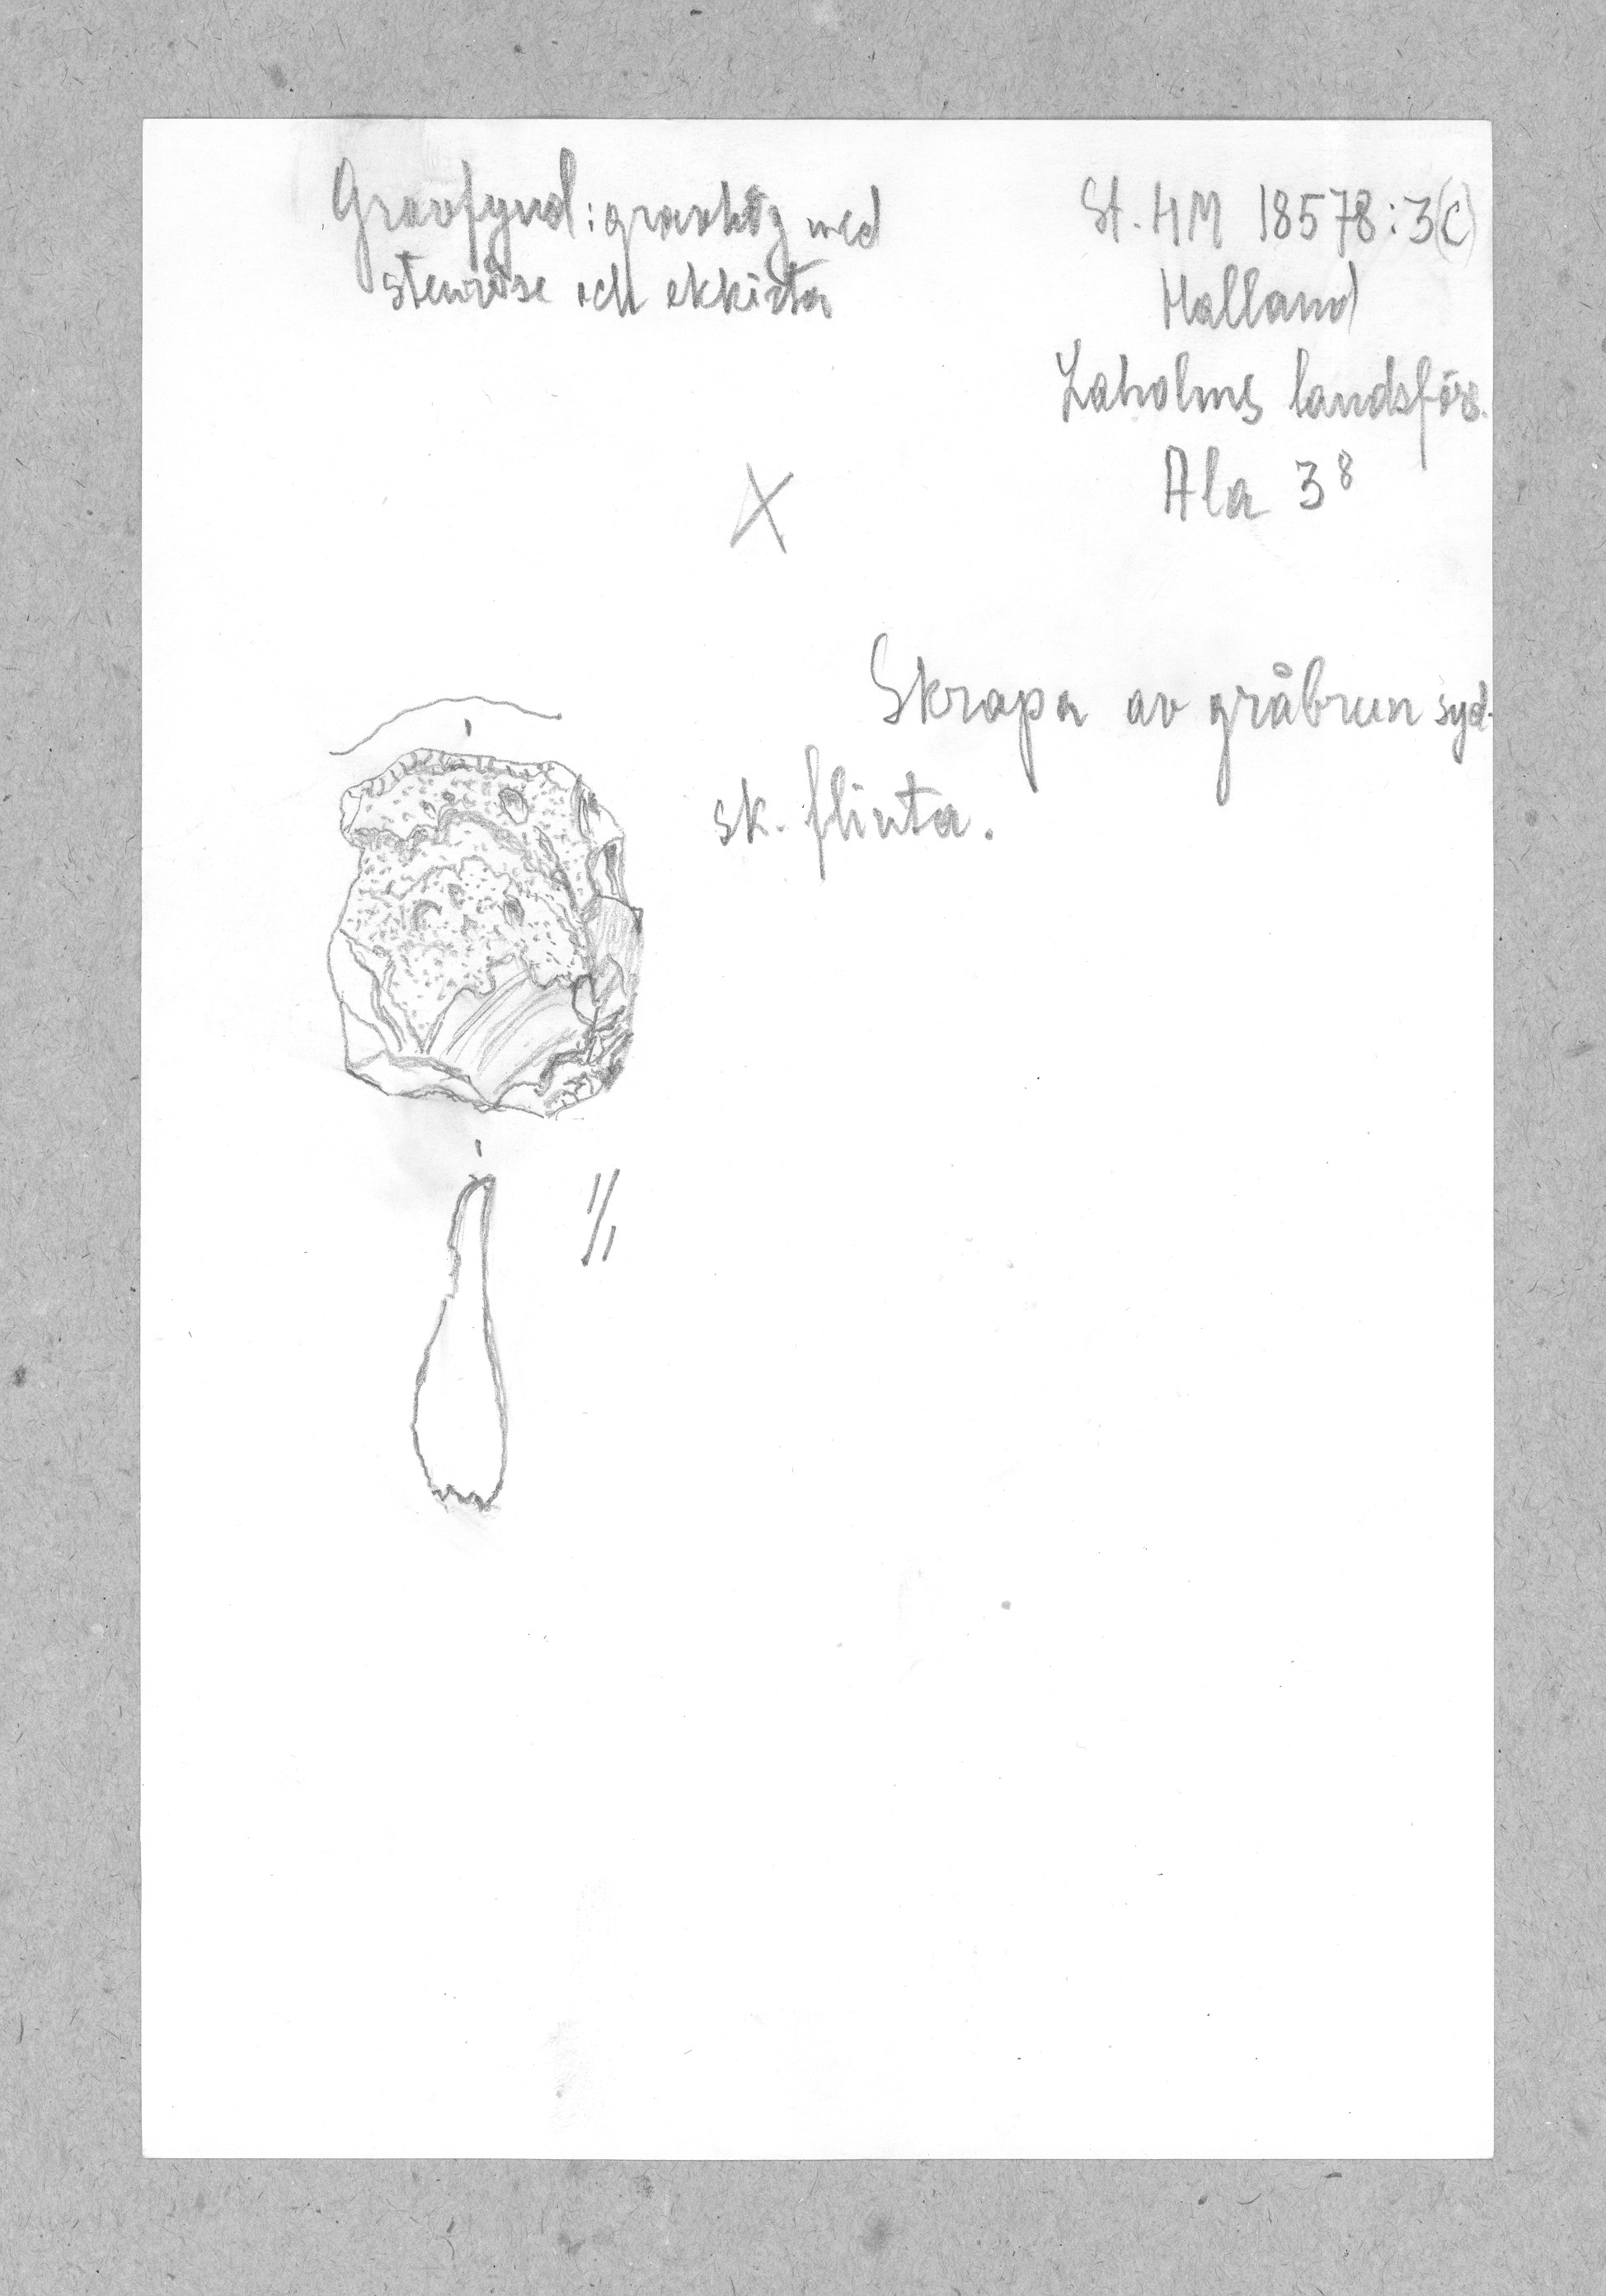 Gravfynd: gravhög med
stenröse och ekkista
St. HM 18578:3(c)
Halland
Laholms landsförs.
Ala 3⁸
X
Skrapa av gråbrun syd-
sk. flinta.
1/1